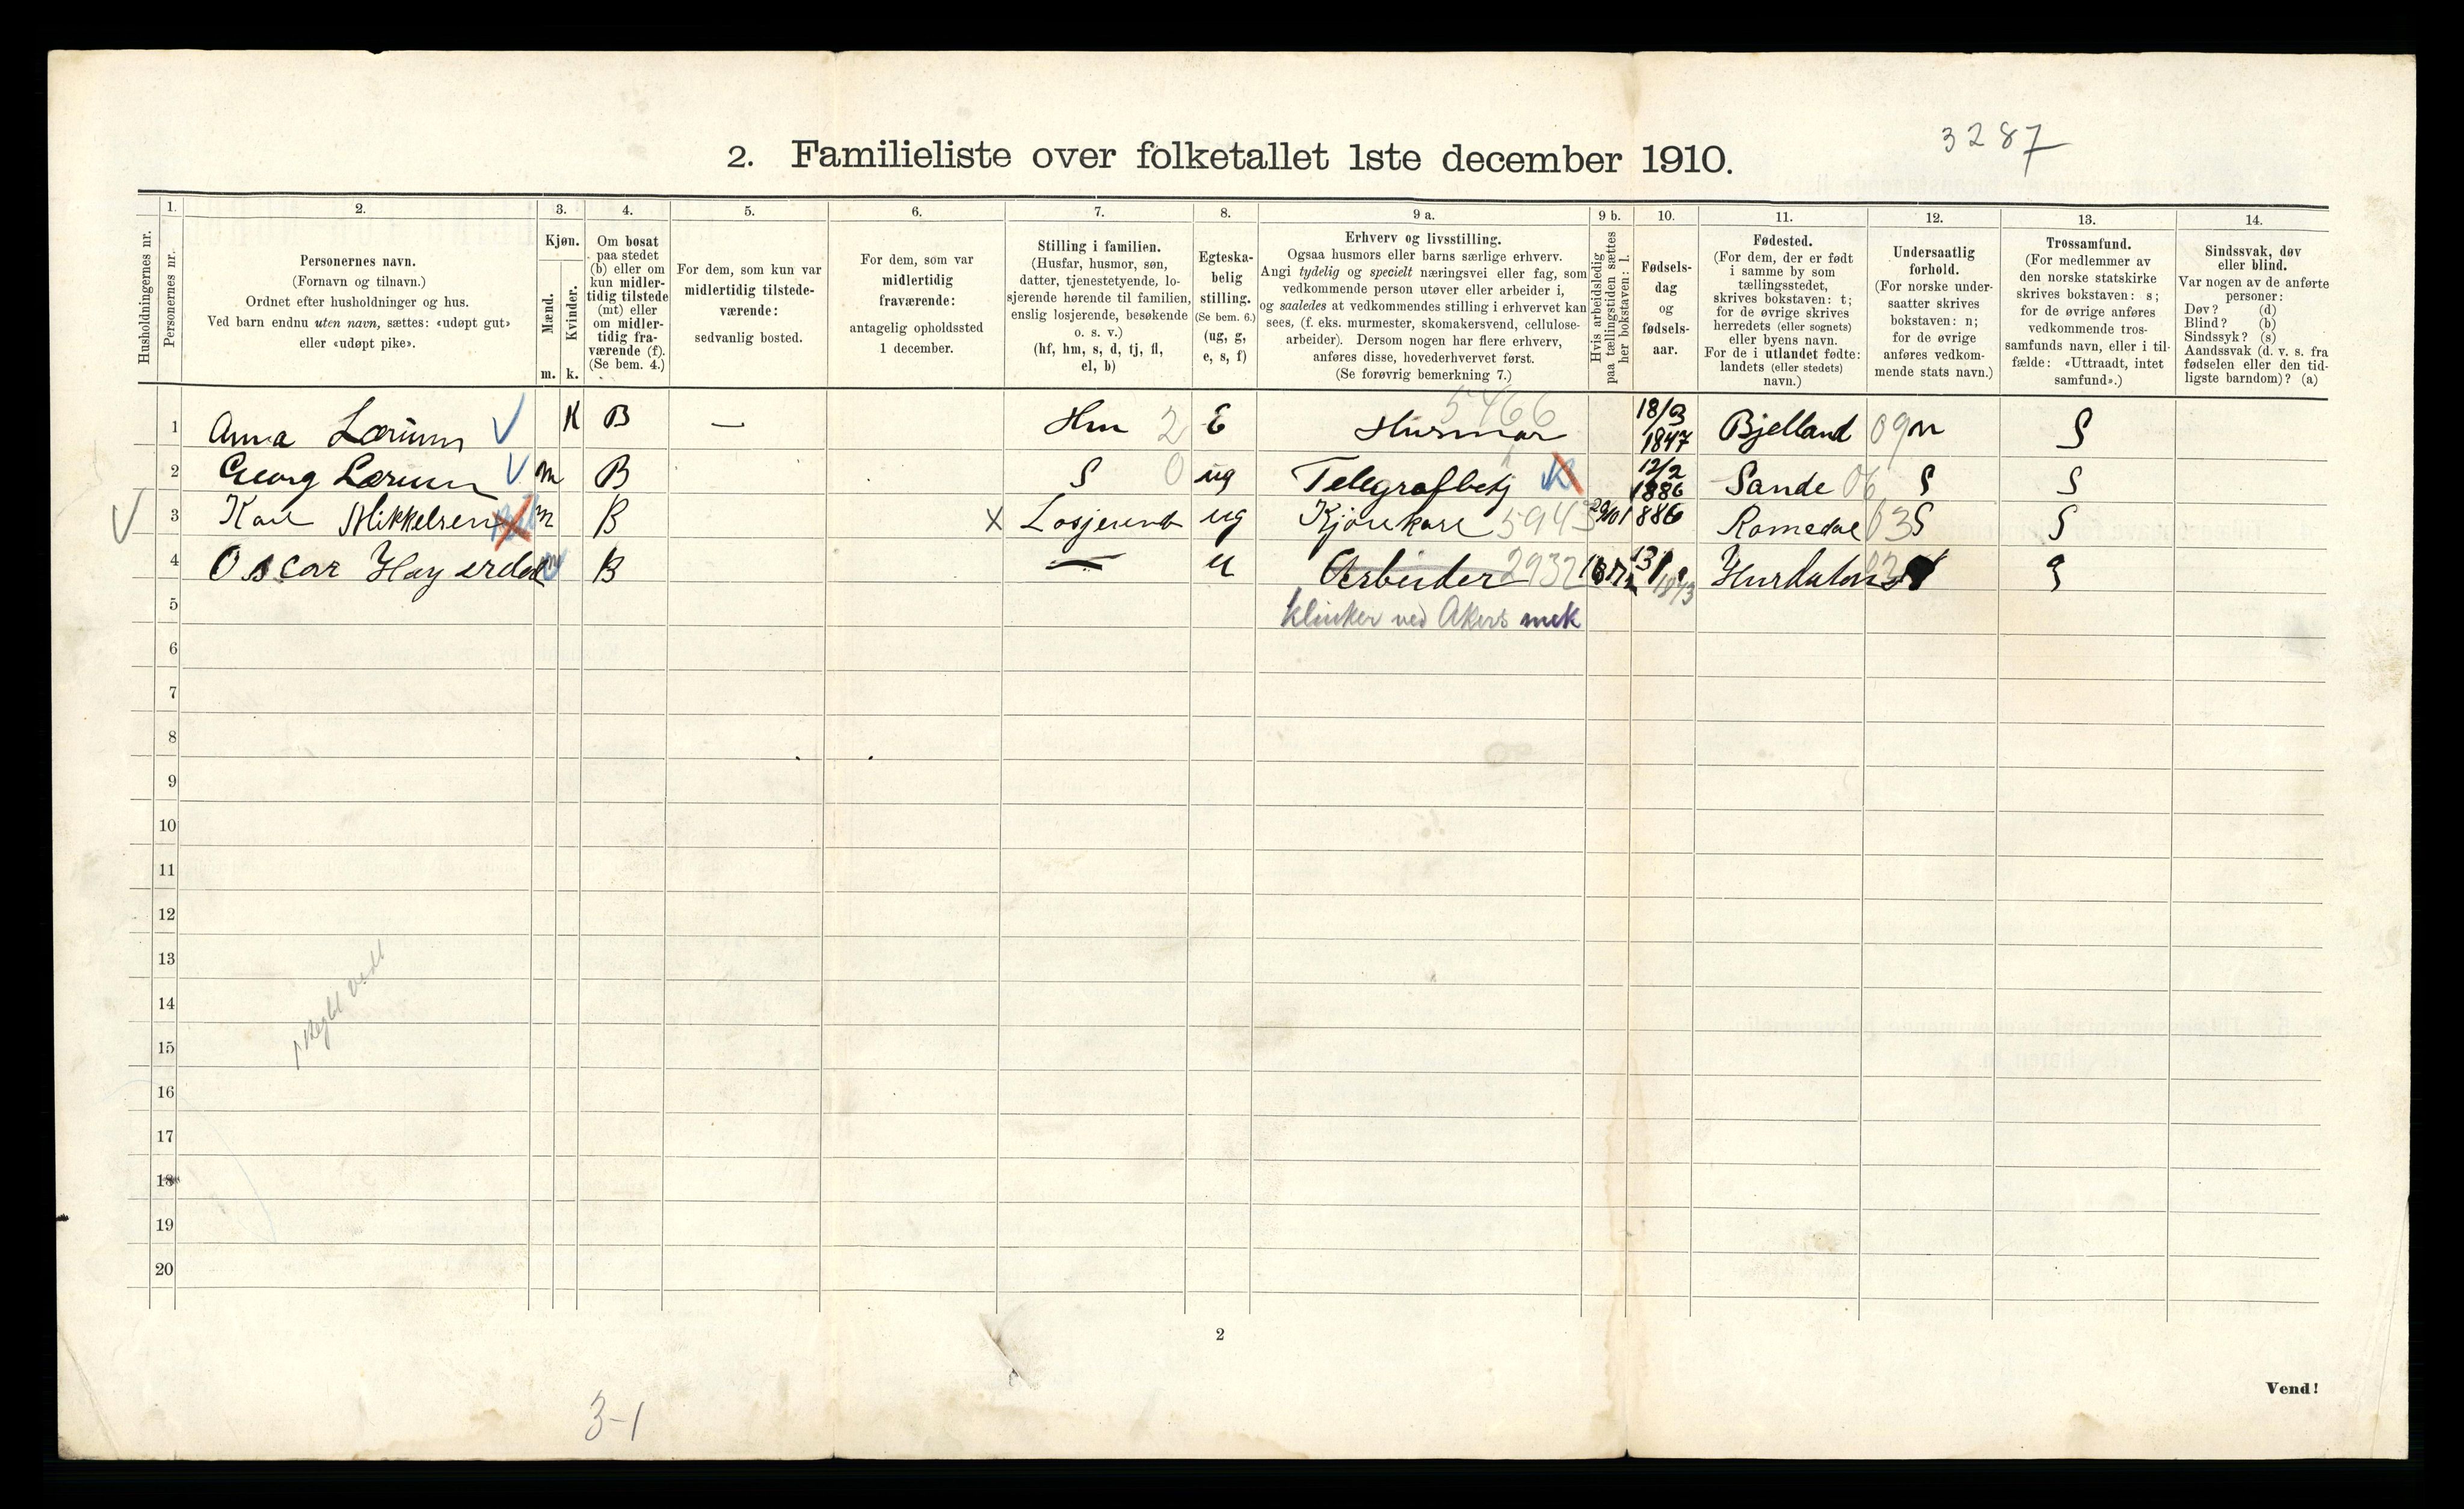 3287
2. Familieliste over folketallet 1ste december 1910.
Husholdningernes nr.
1. Personernes nr.
2. Personernes navn.
(Fornavn og tilnavn.)
Ordnet efter husholdninger og hus.
Ved barn endnu uten navn, sættes: «udøpt gut»
eller «udøpt pike».
3. Kjøn.
Mænd. Kvinder.
m. k.
4. Om bosat
paa stedet
(b) eller om
kun midler-
tidig tilstede
(mt) eller
om midler-
tidig fra-
værende (f).
(Se bem. 4.)
5. For dem, som kun var
midlertidig tilstede-
værende:
sedvanlig bosted.
6. For dem, som var
midlertidig
fraværende:
antagelig opholdssted
1 december.
7. Stilling i familien.
(Husfar, husmor, søn,
datter, tjenestetyende, lo-
sjerende hørende til familien,
enslig losjerende, besøkende
o. s. v.)
(hf, hm, s, d, tj, fl,
el, b)
8. Egteska-
belig
stilling.
(Se bem. 6.)
(ug, g,
e, s, f)
9 a. Erhverv og livsstilling.
Ogsaa husmors eller barns særlige erhverv.
Angi tydelig og specielt næringsvei eller fag, som
vedkommende person utøver eller arbeider i,
og saaledes at vedkommendes stilling i erhvervet kan
sees, (f. eks. murmester, skomakersvend, cellulose-
arbeider). Dersom nogen har flere erhverv,
anføres disse, hovederhvervet først.
(Se forøvrig bemerkning 7.)
9 b. Hvis arbeidsledig
paa tællingstiden sættes
her bokstaven: l.
10. Fødsels-
dag
og
fødsels-
aar.
11. Fødested.
(For dem, der er født
i samme by som
tællingsstedet,
skrives bokstaven: t;
for de øvrige skrives
herredets (eller sognets)
eller byens navn.
For de i utlandet fødte:
landets (eller stedets)
navn.)
12. Undersaatlig
forhold.
(For norske under-
saatter skrives
bokstaven: n;
for de øvrige
anføres vedkom-
mende stats navn.)
13. Trossamfund.
(For medlemmer av
den norske statskirke
skrives bokstaven: s;
for de øvrige anføres
vedkommende tros-
samfunds navn, eller i til-
fælde: «Uttraadt, intet
samfund».)
14. Sindssvak, døv
eller blind.
Var nogen av de anførte
personer:
Døv? (d)
Blind? (b)
Sindssyk? (s)
Aandssvak (d. v. s. fra
fødselen eller den tid-
ligste barndom)? (a)
1 Anna Lærum K B — Hm 2 E Husmor 5466 18/3 1847 Bjelland 09 n S
2 Georg Lærum m B S 0 ug Telegrafbetj 12/2 1886 Sande 06 S S
3 Karl Mikkelsen m B x Losjerend ug Kjørekarl 5943 1886 Romedal 03 S S
4 Oscar B — u Arbeider 2932 Hurdalen S
5 klinker ved Akers mek
6
7
8
9
10
11
12
13
14
15
16
17
18
19
20
2
Vend!
3-1